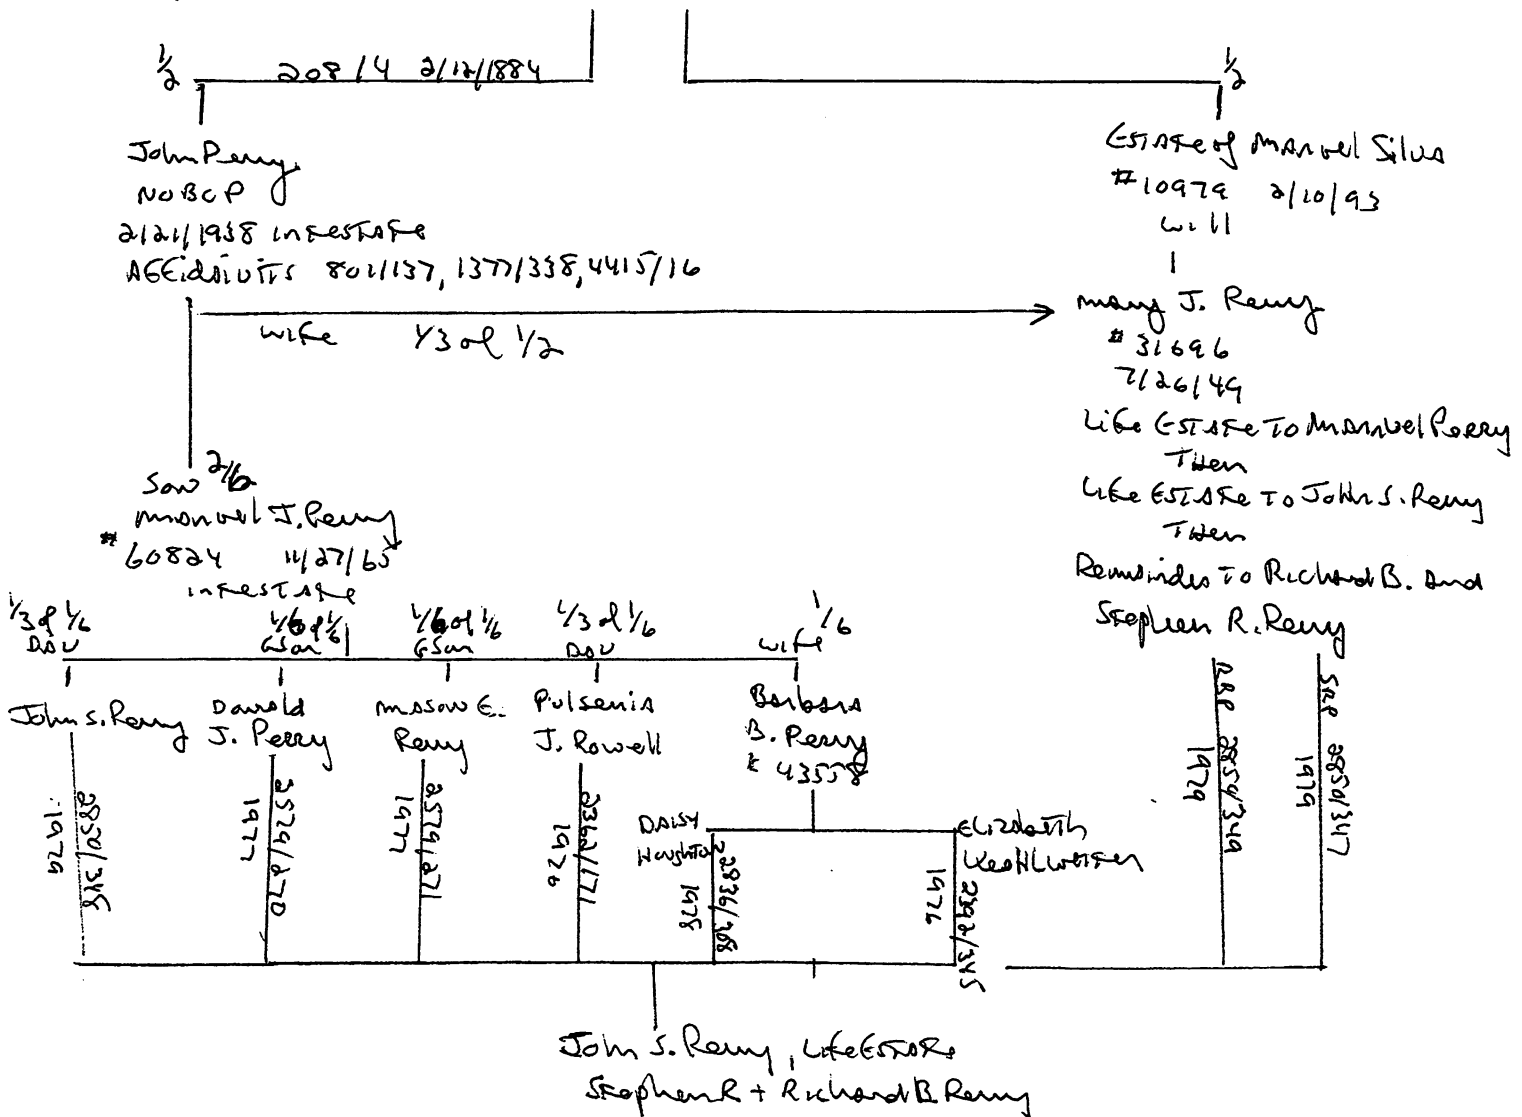 1/2 208/4 2/12/1884
1/2
John Perry
NOBCP
2/21/1938 intestate
Affidavits 801/137, 1377/338, 4415/16
wife 1/3 of 1/2
Estate of Manuel Silva
#10979 2/10/93
will
Mary J. Perry
#31696
7/26/49
Life Estate To Manuel Perry
Then
Life Estate To John S. Perry
Then
Remainder To Richard B. and
Stephen R. Perry
Son 2/6
Manuel J. Perry
#60824 11/27/65
intestate
1/3 of 1/6
DAU
1/6 of 1/6
GSon
1/6 of 1/6
GSon
1/3 of 1/6
DAU
wife 1/6
John S. Perry
Donald
J. Perry
Mason E.
Perry
Pulsenia
J. Rowell
Barbara
B. Perry
# 43558
2850/348
1979
2579/270
1977
2579/271
1977
2362/171
1976
DAISY
Houghton
2836/308
1978
Elizabeth
2392/345
1976
RBP 2850/349
1979
SRP 2850/347
1979
John S. Perry, Life Estate
Stephen R + Richard B. Perry